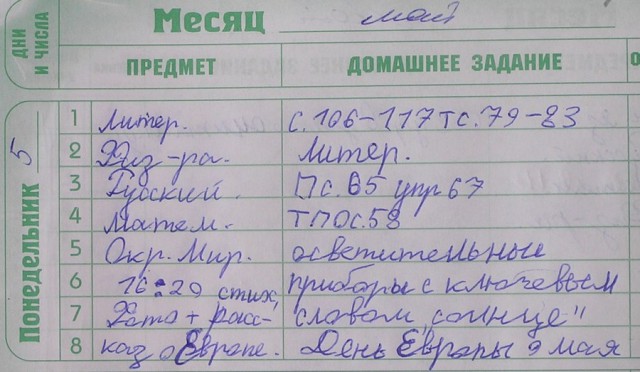 ДНИ И ЧИСЛА
Месяц май
ПРЕДМЕТ ДОМАШНЕЕ ЗАДАНИЕ
Понедельник 5
1 Литер. с. 106-117 тс. 79-83
2 Физ-ра. Литер.
3 Русский. Пс. 65 упр 67
4 Матем. ТПОс. 58
5 Окр. Мир. осветительные
6 16:20 стих, приборы с ключевым
7 Фото + расс- словом "солнце"
8 каз о Европе. День Европы 9 мая